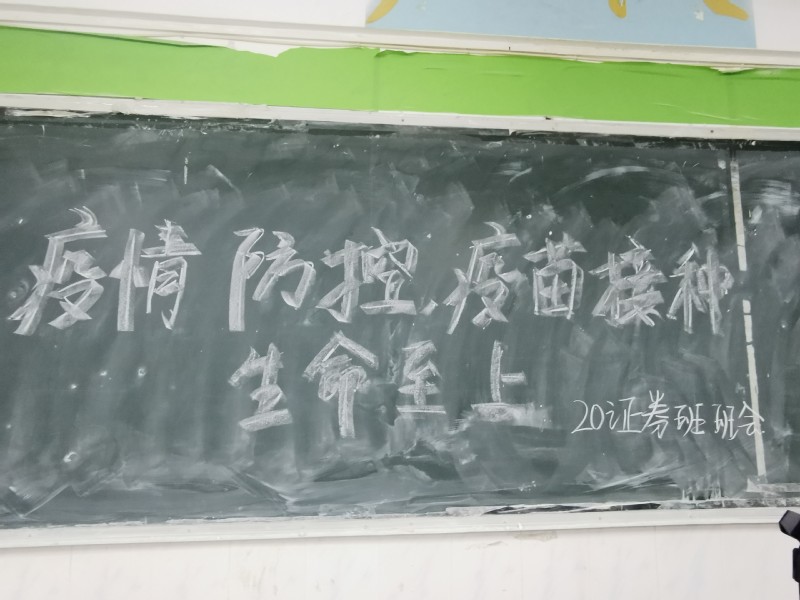 疫情防控,疫苗接种
生命至上
20证券班班会